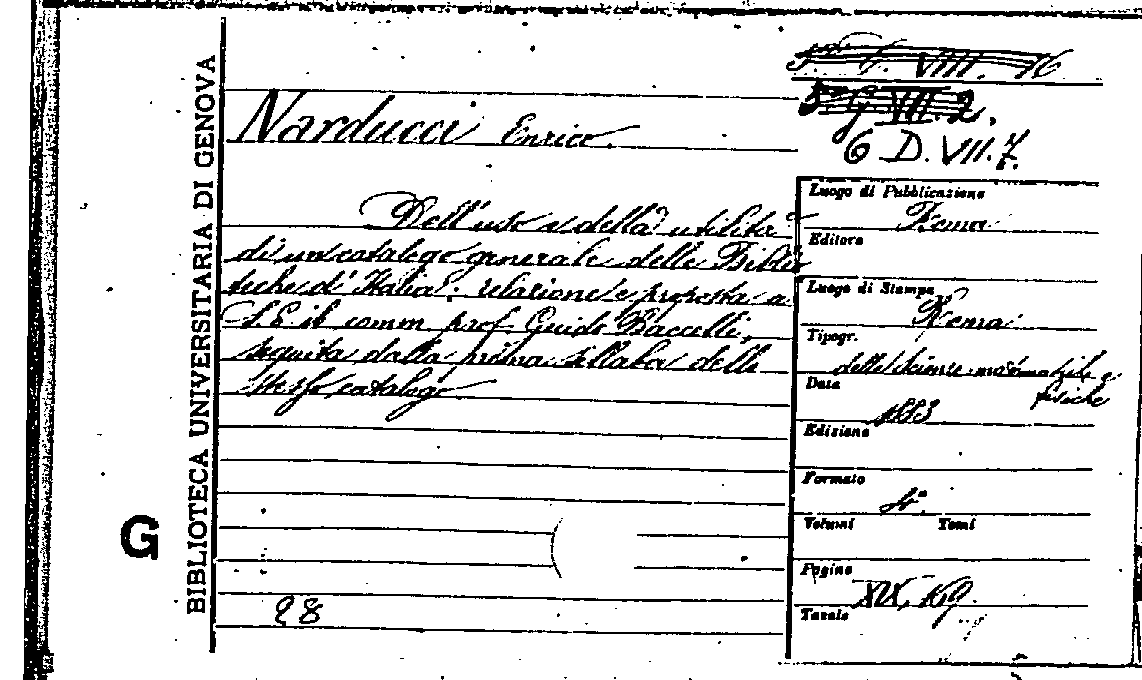 BIBLIOTECA UNIVERSITARIA DI GENOVA
G
VIII. 16
5 G VII. 2.
6 D. VII. 7.
Narducci Enrico.
Dell'uso e della utilità
di un catalogo generale delle Biblio
teche d'Italia: relazione e proposta a
S. E. il comm prof. Guido Baccelli,
seguita dalla prima sillaba dello
stesso catalogo
28
Luogo di Pubblicazione
Roma
Editore
Luogo di Stampa
Roma
Tipogr.
delle scienze matematiche e
fisiche
Data
1883
Edizione
Formato
4°
Volumi Tomi
Pagine
XIX, 169
Tavole